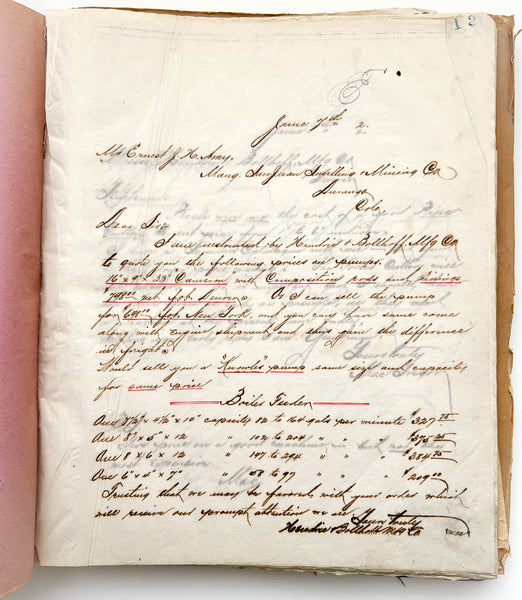 12
E.
June 7th 2.
Mr Ernest J. H. Amy.
Mang. San Juan Smelting & Mining Co
Durango
Colo
Dear Sir
I am instructed by Hendrie & Bolthoff Mfg Co
to quote you the following prices on pumps.
16" x 9" x 38" "Cameron" with Composition rods and
$798.00 net fob Denver. Or I can sell the pump
for 698.00 fob New York, and you can have same come
along with shipment and save you the difference
in freight.
Would sell you a "Knowles" pump same size and capacity
for same price
Boiler Feeders
One 7½" x 4½" x 10" capacity 12 to 164 gals per minute $327.75
One 8" x 5" x 12 " 102 to 204 " " " $375.25
One 8 x 6 x 12 " 147 to 294 " " " $384.75
One 6" x 4" x 7" " 58 to 97 " " " $209.00
Trusting that we may be favored with your order which
will receive our prompt attention we are
Yours truly
Hendrie & Bolthoff Mfg Co